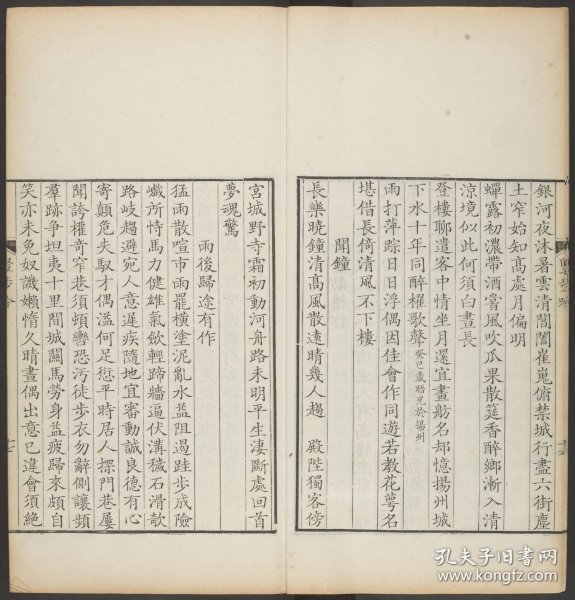 銀河夜沐暑雲清閶闔崔嵬俯禁城行盡六街塵
土窄始知高處月偏明
蟬露初濃帶酒嘗風吹瓜果散筵香醉鄉漸入清
涼境似此何須白晝長
登樓聊遣客中情坐月還宜畫舫名却憶揚州城
下水十年同醉櫂歌聲癸巳歲晤兄於揚州
雨打萍踪日日浮偶因佳會作同遊若教花萼名
堪借長倚清風不下樓
聞鐘
長樂曉鐘清高風散遠晴幾人趨 殿陛獨客傍
宮城野寺霜初動河舟路未明平生淒斷處回首
夢魂驚
雨後歸途有作
猛雨散喧市雨罷橫塗泥亂水益阻遏跬步成險
巇所恃馬力健雄氣飲輕蹄牆逼伏溝穢石滑欹
路岐趨避宛人意遲疾隨地宜審動誠良德有心
寄顛危失馭才偶溢何足愆平時居人探門巷屢
聞誇權奇窄巷須頓轡恐污徒步衣勿辭側讓頻
羣跡爭坦夷十里間城闕馬勞身益疲歸來頗自
笑亦未免奴譏嬾惰久晴晝偶出意已違會須絕
孔夫子旧书网
www.kongfz.com